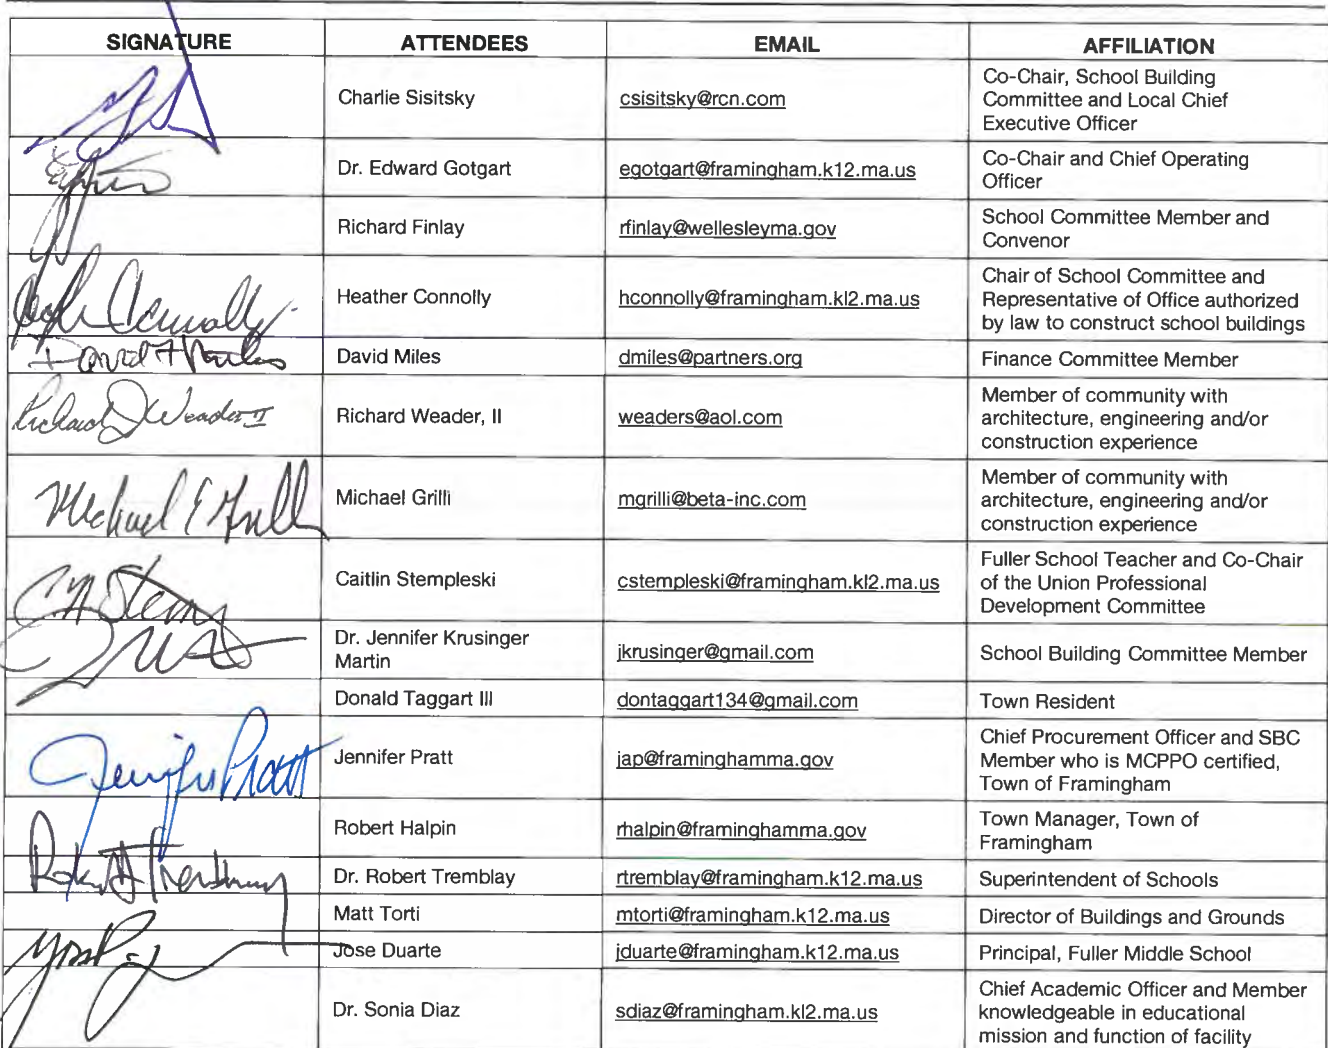 SIGNATURE ATTENDEES EMAIL AFFILIATION
Charlie Sisitsky csisitsky@rcn.com Co-Chair, School Building
Committee and Local Chief
Executive Officer
Dr. Edward Gotgart egotgart@framingham.k12.ma.us Co-Chair and Chief Operating
Officer
Richard Finlay rfinlay@wellesleyma.gov School Committee Member and
Convenor
Connolly Heather Connolly hconnolly@framingham.kl2.ma.us Chair of School Committee and
Representative of Office authorized
by law to construct school buildings
David F Miles David Miles dmiles@partners.org Finance Committee Member
Richard J Weader II Richard Weader, II weaders@aol.com Member of community with
architecture, engineering and/or
construction experience
Michael E Grilli Michael Grilli mgrilli@beta-inc.com Member of community with
architecture, engineering and/or
construction experience
Caitlin Stempleski cstempleski@framingham.kl2.ma.us Fuller School Teacher and Co-Chair
of the Union Professional
Development Committee
Dr. Jennifer Krusinger
Martin jkrusinger@gmail.com School Building Committee Member
Donald Taggart III dontaggart134@gmail.com Town Resident
Jennifer Pratt Jennifer Pratt jap@framinghamma.gov Chief Procurement Officer and SBC
Member who is MCPPO certified,
Town of Framingham
Robert Halpin rhalpin@framinghamma.gov Town Manager, Town of
Framingham
Dr. Robert Tremblay rtremblay@framingham.k12.ma.us Superintendent of Schools
Matt Torti mtorti@framingham.k12.ma.us Director of Buildings and Grounds
Jose Duarte jduarte@framingham.k12.ma.us Principal, Fuller Middle School
Dr. Sonia Diaz sdiaz@framingham.kl2.ma.us Chief Academic Officer and Member
knowledgeable in educational
mission and function of facility